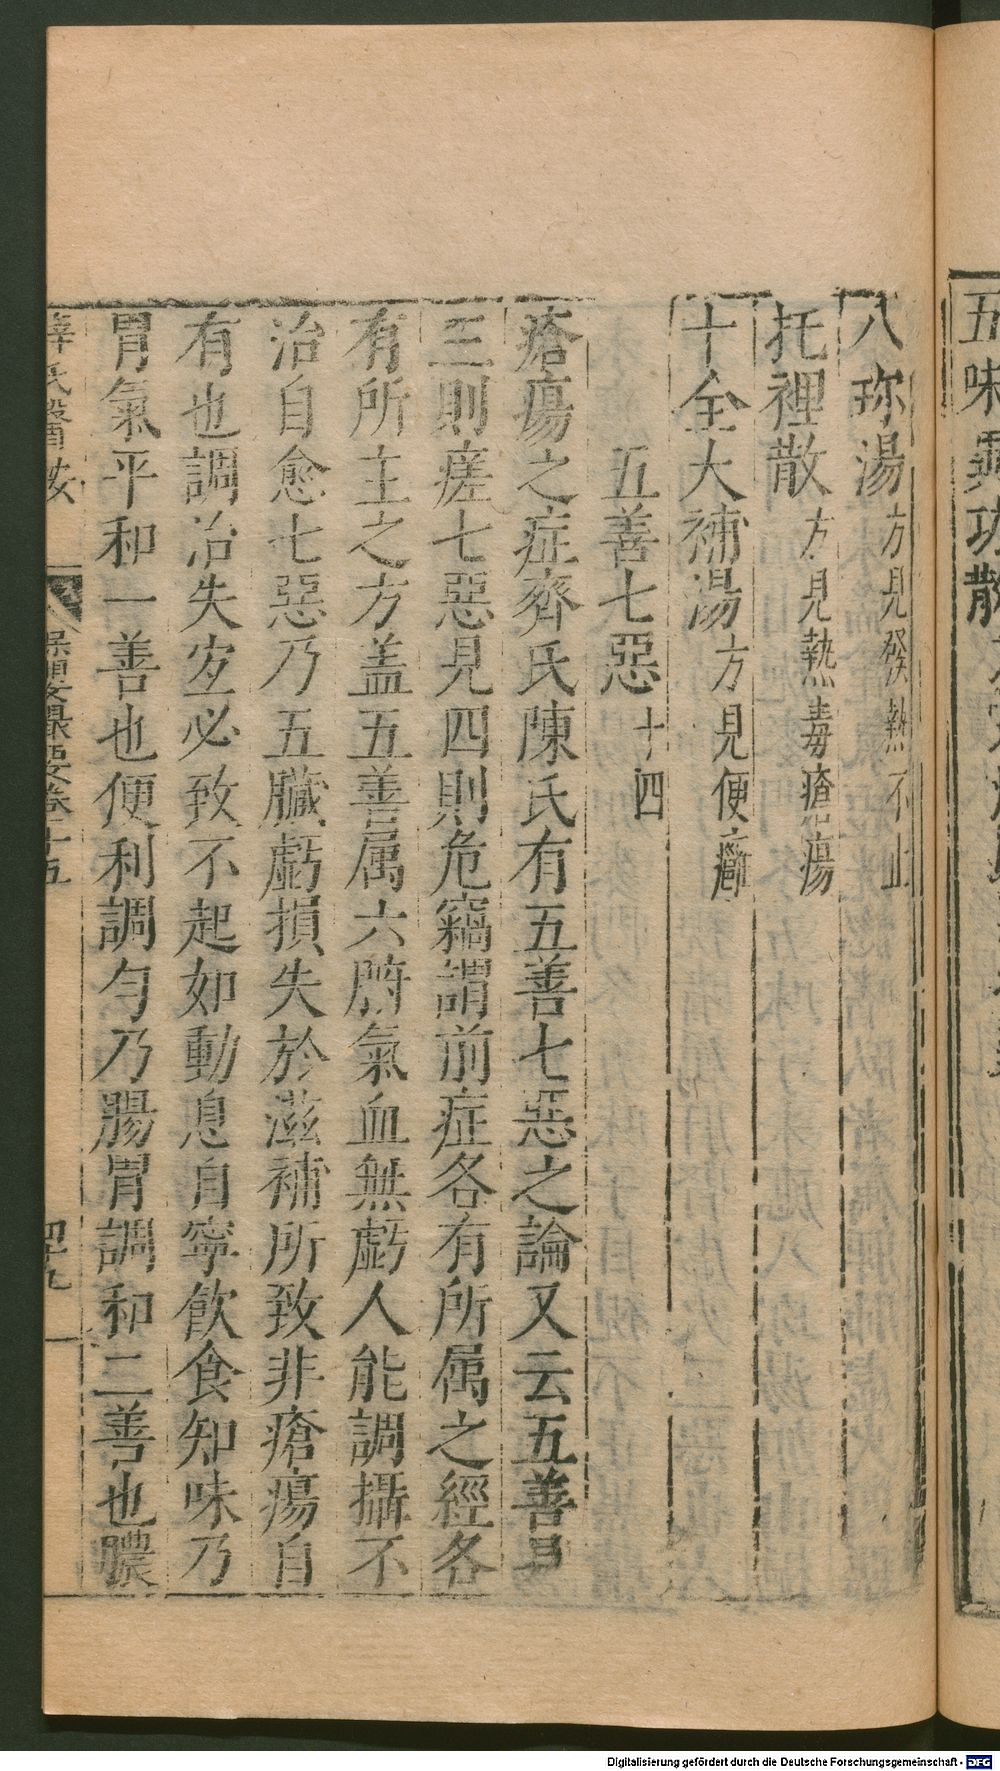 五味異功散
八珎湯方見發熱不止
托裡散方見熱毒瘡瘍
十全大補湯方見便癰
五善七惡十四
瘡瘍之症齊氏陳氏有五善七惡之論又云五善見
三則瘥七惡見四則危竊謂前症各有所属之經各
有所主之方盖五善属六腑氣血無虧人能調攝不
治自愈七惡乃五臟虧損失於滋補所致非瘡瘍自
有也調治失宜必致不起如動息自寧飲食知味乃
胃氣平和一善也便利調勻乃腸胃調和二善也膿
薛氏醫按 保嬰撮要卷十五 四十九
Digitalisierung gefördert durch die Deutsche Forschungsgemeinschaft - DFG